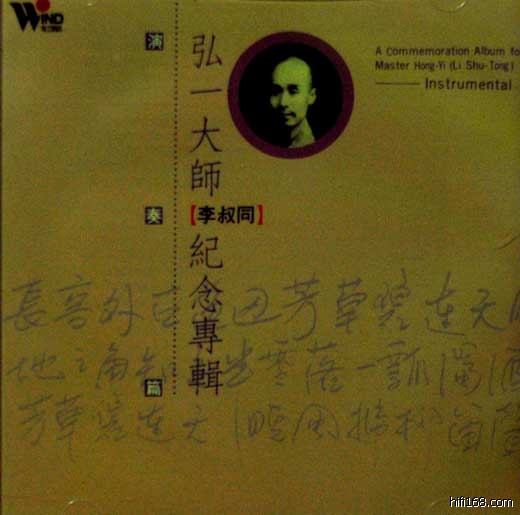 WIND
A Commemoration Album fo
Master Hong-Yi (Li Shu-Tong)
Instrumental
演奏篇
弘一大師【李叔同】紀念專輯
長亭外古邊芳草碧連天
地之角知半零落一瓢濁酒
芳草碧連天 晚風拂柳笛聲
hifi168.com